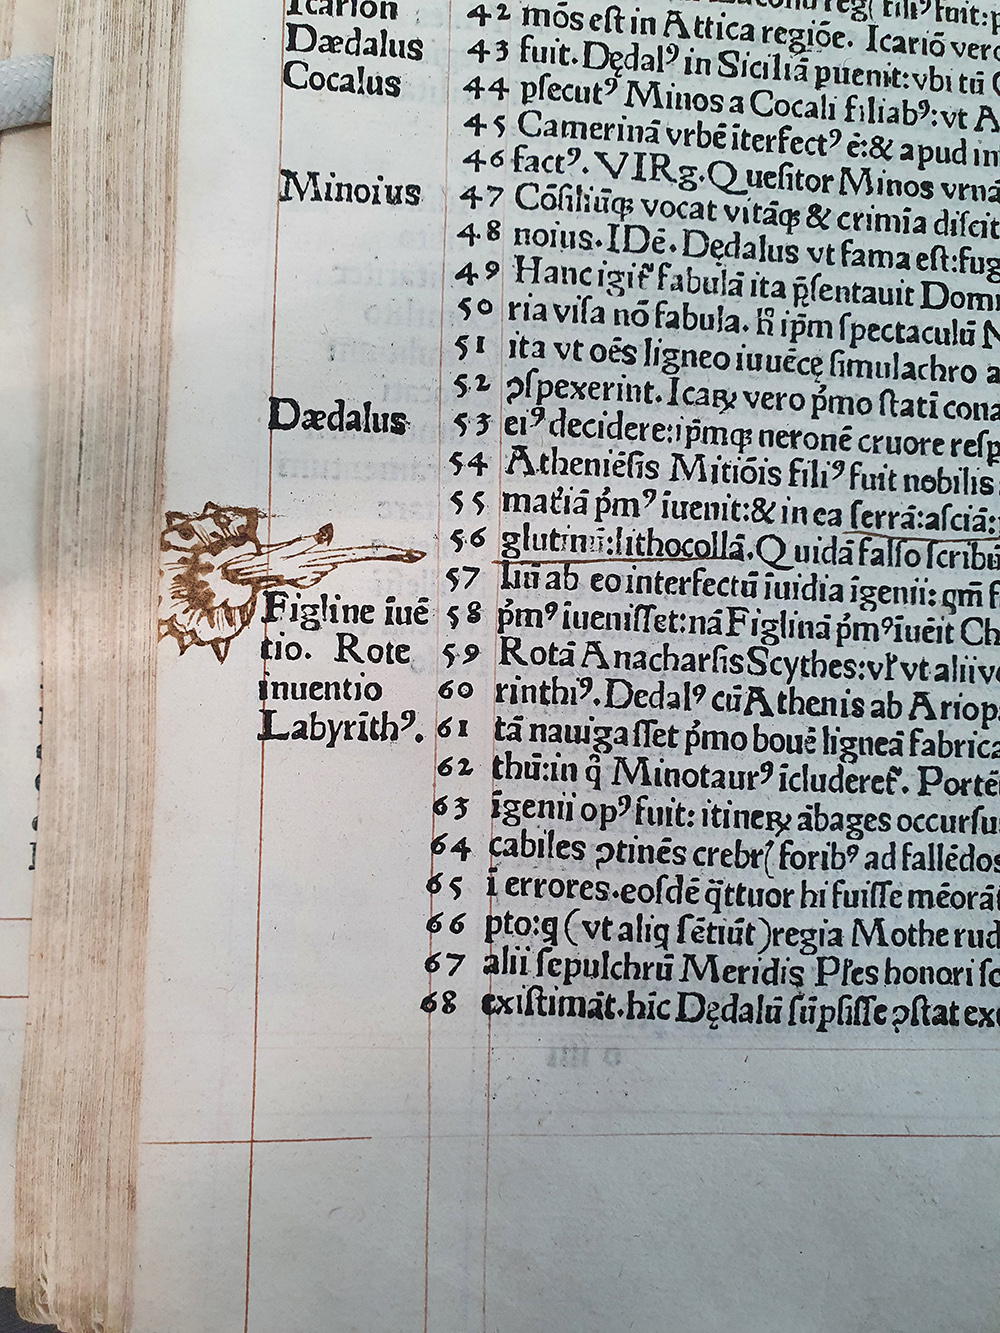 Icarion 42 mōs eſt in Attica regiōe. Icariō vero
Dædalus 43 fuit. Dędalꝰ in Siciliā puenit: vbi tū
Cocalus 44 pſecutꝰ Minos a Cocali filiabꝰ: vt A
45 Camerinā vrbē īterfectꝰ ē: & apud in
46 factꝰ. VIRg. Queſitor Minos vrnā
Minoius 47 Cōſiliūqꝫ vocat vitāqꝫ & crimīa diſcit
48 noius. IDē. Dędalus vt fama eſt: fug
49 Hanc igit᷑ fabulā ita p̄ſentauit Domi
50 ria viſa nō fabula. ipm̄ ſpectaculū N
51 ita vt oēs ligneo iuuēcę ſimulachro a
52 ꝯſpexerint. Icaꝝ vero pͥmo ſtatī cona
Dædalus 53 eiꝰ decidere: ipm̄qꝫ neronē cruore reſp
54 Atheniēſis Mitiōis filiꝰ fuit nobilis
55 mat᷑iā pͥmꝰ īuenit: & in ea ſerrā: aſciā:
56 glutinū: lithocollā. Quidā falſo ſcribū
57 liū ab eo interfectū īuidia īgenii: qm̄ f
Figline īuē 58 pͥmꝰ īueniſſet: nā Figlinā pͥmꝰ īuēit Ch
tio. Rote 59 Rotā Anacharſis Scythes: vl᷑ vt alii vo
inuentio 60 rinthiꝰ. Dedalꝰ cū Athenis ab Ariop
Labyrīthꝰ. 61 tā nauigaſſet pͥmo bouē ligneā fabrica
62 thū: in qͦ Minotaurꝰ īcluderet᷑. Portē
63 īgenii opꝰ fuit: itineꝝ ābages occurſu
64 cabiles ꝯtinēs crebrͥ foribꝰ ad fallēdos
65 ī errores. eoſdē q̄ttuor hi fuiſſe mēorāt
66 pto: q (vt aliq ſētiūt) regia Mothe rud
67 alii ſepulchrū Meridis Pl᷑es honori ſo
68 exiſtimāt. hīc Dędalū ſūpſiſſe ꝯſtat exe